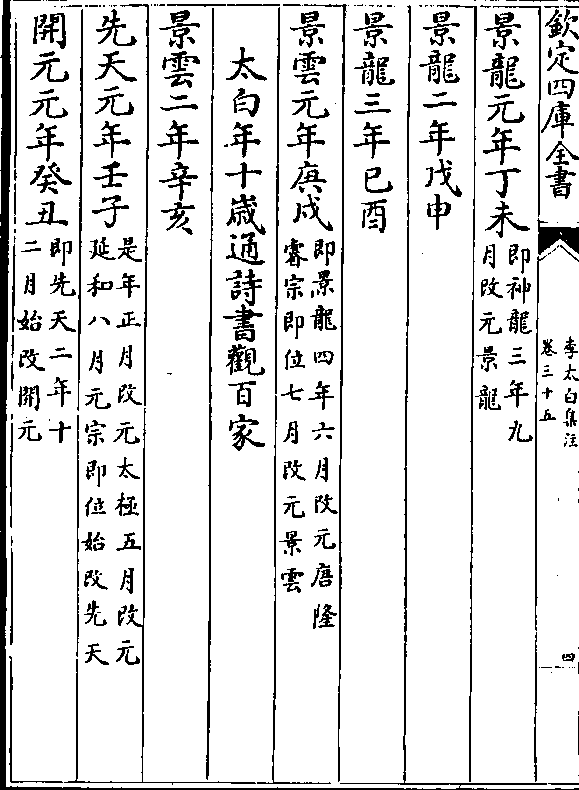 欽定四庫全書
李太白集注
卷三十五
四
景龍元年丁未
即神龍三年九
月改元景龍
景龍二年戊申
景龍三年己酉
景雲元年庚戌
即景龍四年六月改元唐隆
睿宗即位七月改元景雲
太白年十歲通詩書觀百家
景雲二年辛亥
先天元年壬子
是年正月改元太極五月改元
延和八月元宗即位始改先天
開元元年癸丑
即先天二年十
二月始改開元